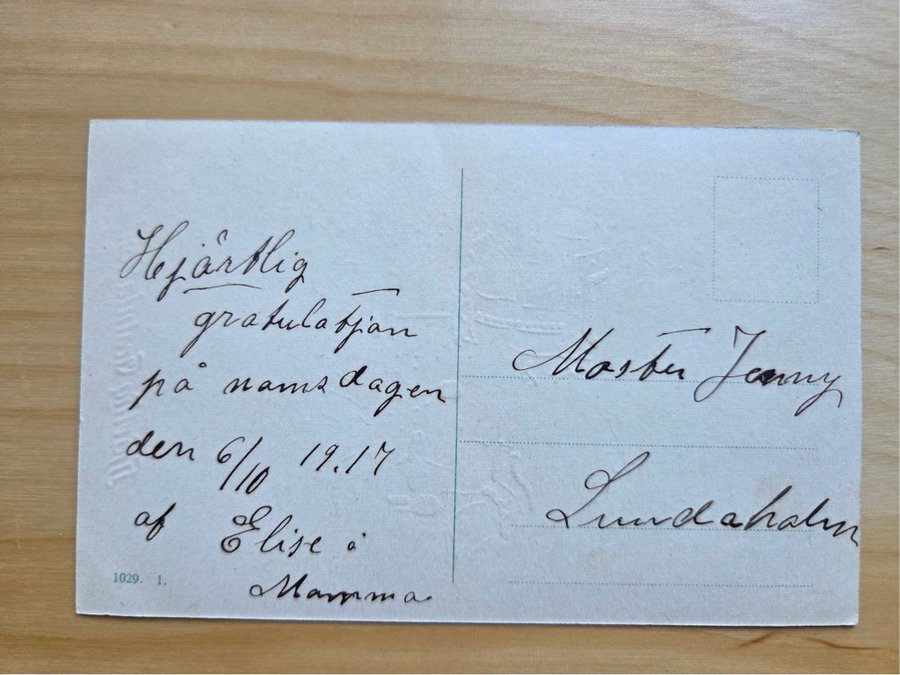 Hjärtlig
gratulatjon
på namsdagen
den 6/10 19.17
af Elise å
Mamma
1029. 1.
Moster Jenny
Lundaholm